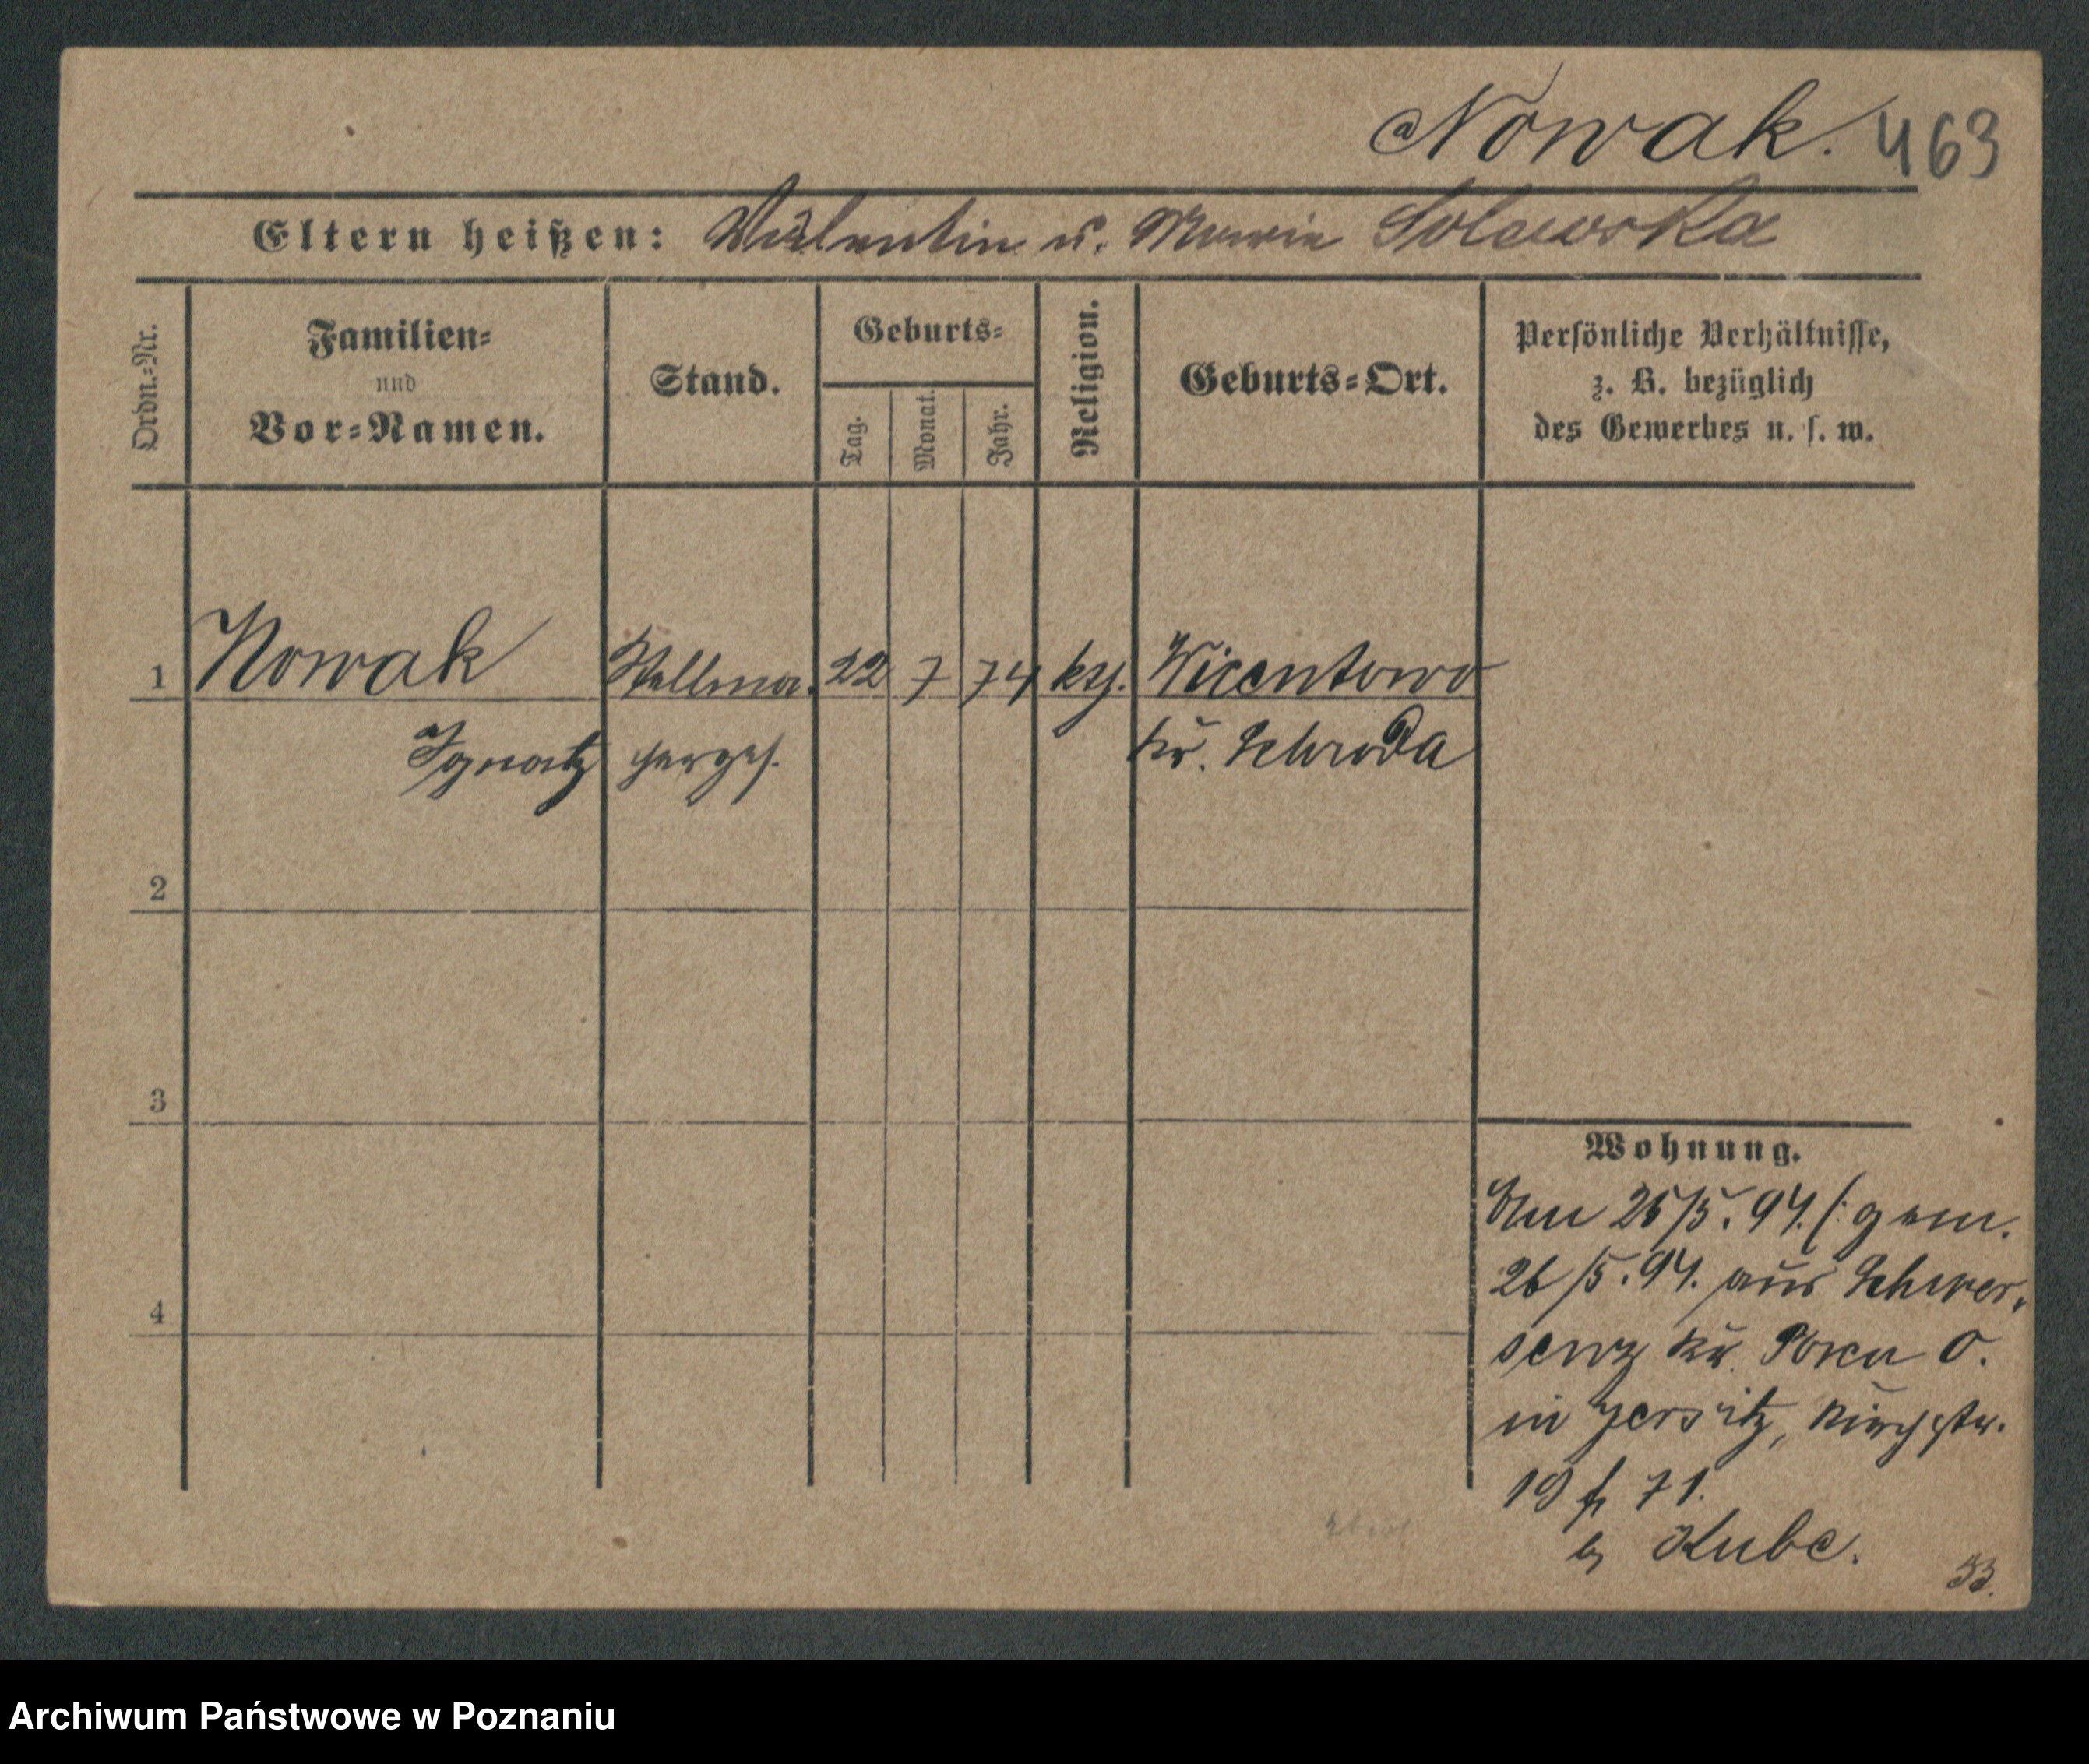 Nowak. 463
Eltern heißen: Valentin u. Maria Solewska
Ordn.-Nr.
Familien-
und
Vor-Namen.
Stand.
Geburts-
Tag.
Monat.
Jahr.
Religion.
Geburts-Ort.
Persönliche Verhältnisse,
z. B. bezüglich
des Gewerbes u. s. w.
1 Nowak Stellma. 22 7 74 kth. Wicentowo
Ignatz Kr. Schroda
2
3
4
Wohnung.
Am 25/5. 94. (: gem.
26/5. 94. aus Schwer-
senz Kr. Posen O.
in Jersitz, Kirchstr.
19 71.
b. Kube.
33.
Archiwum Państwowe w Poznaniu